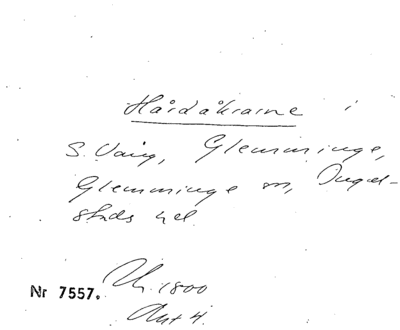 Hårdåkrarne i
S. Vång, Glemminge,
Glemminge sn, Ingel-
stads hd
Nr 7557. 1800
Akt 4.